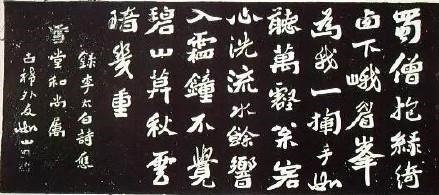 蜀僧抱綠綺
西下峨眉峯
為我一揮手如
聽萬壑松客
心洗流水餘響
入霜鐘不覺
碧山莫秋雲
暗幾重
錄李太白詩應
雪堂和尚屬